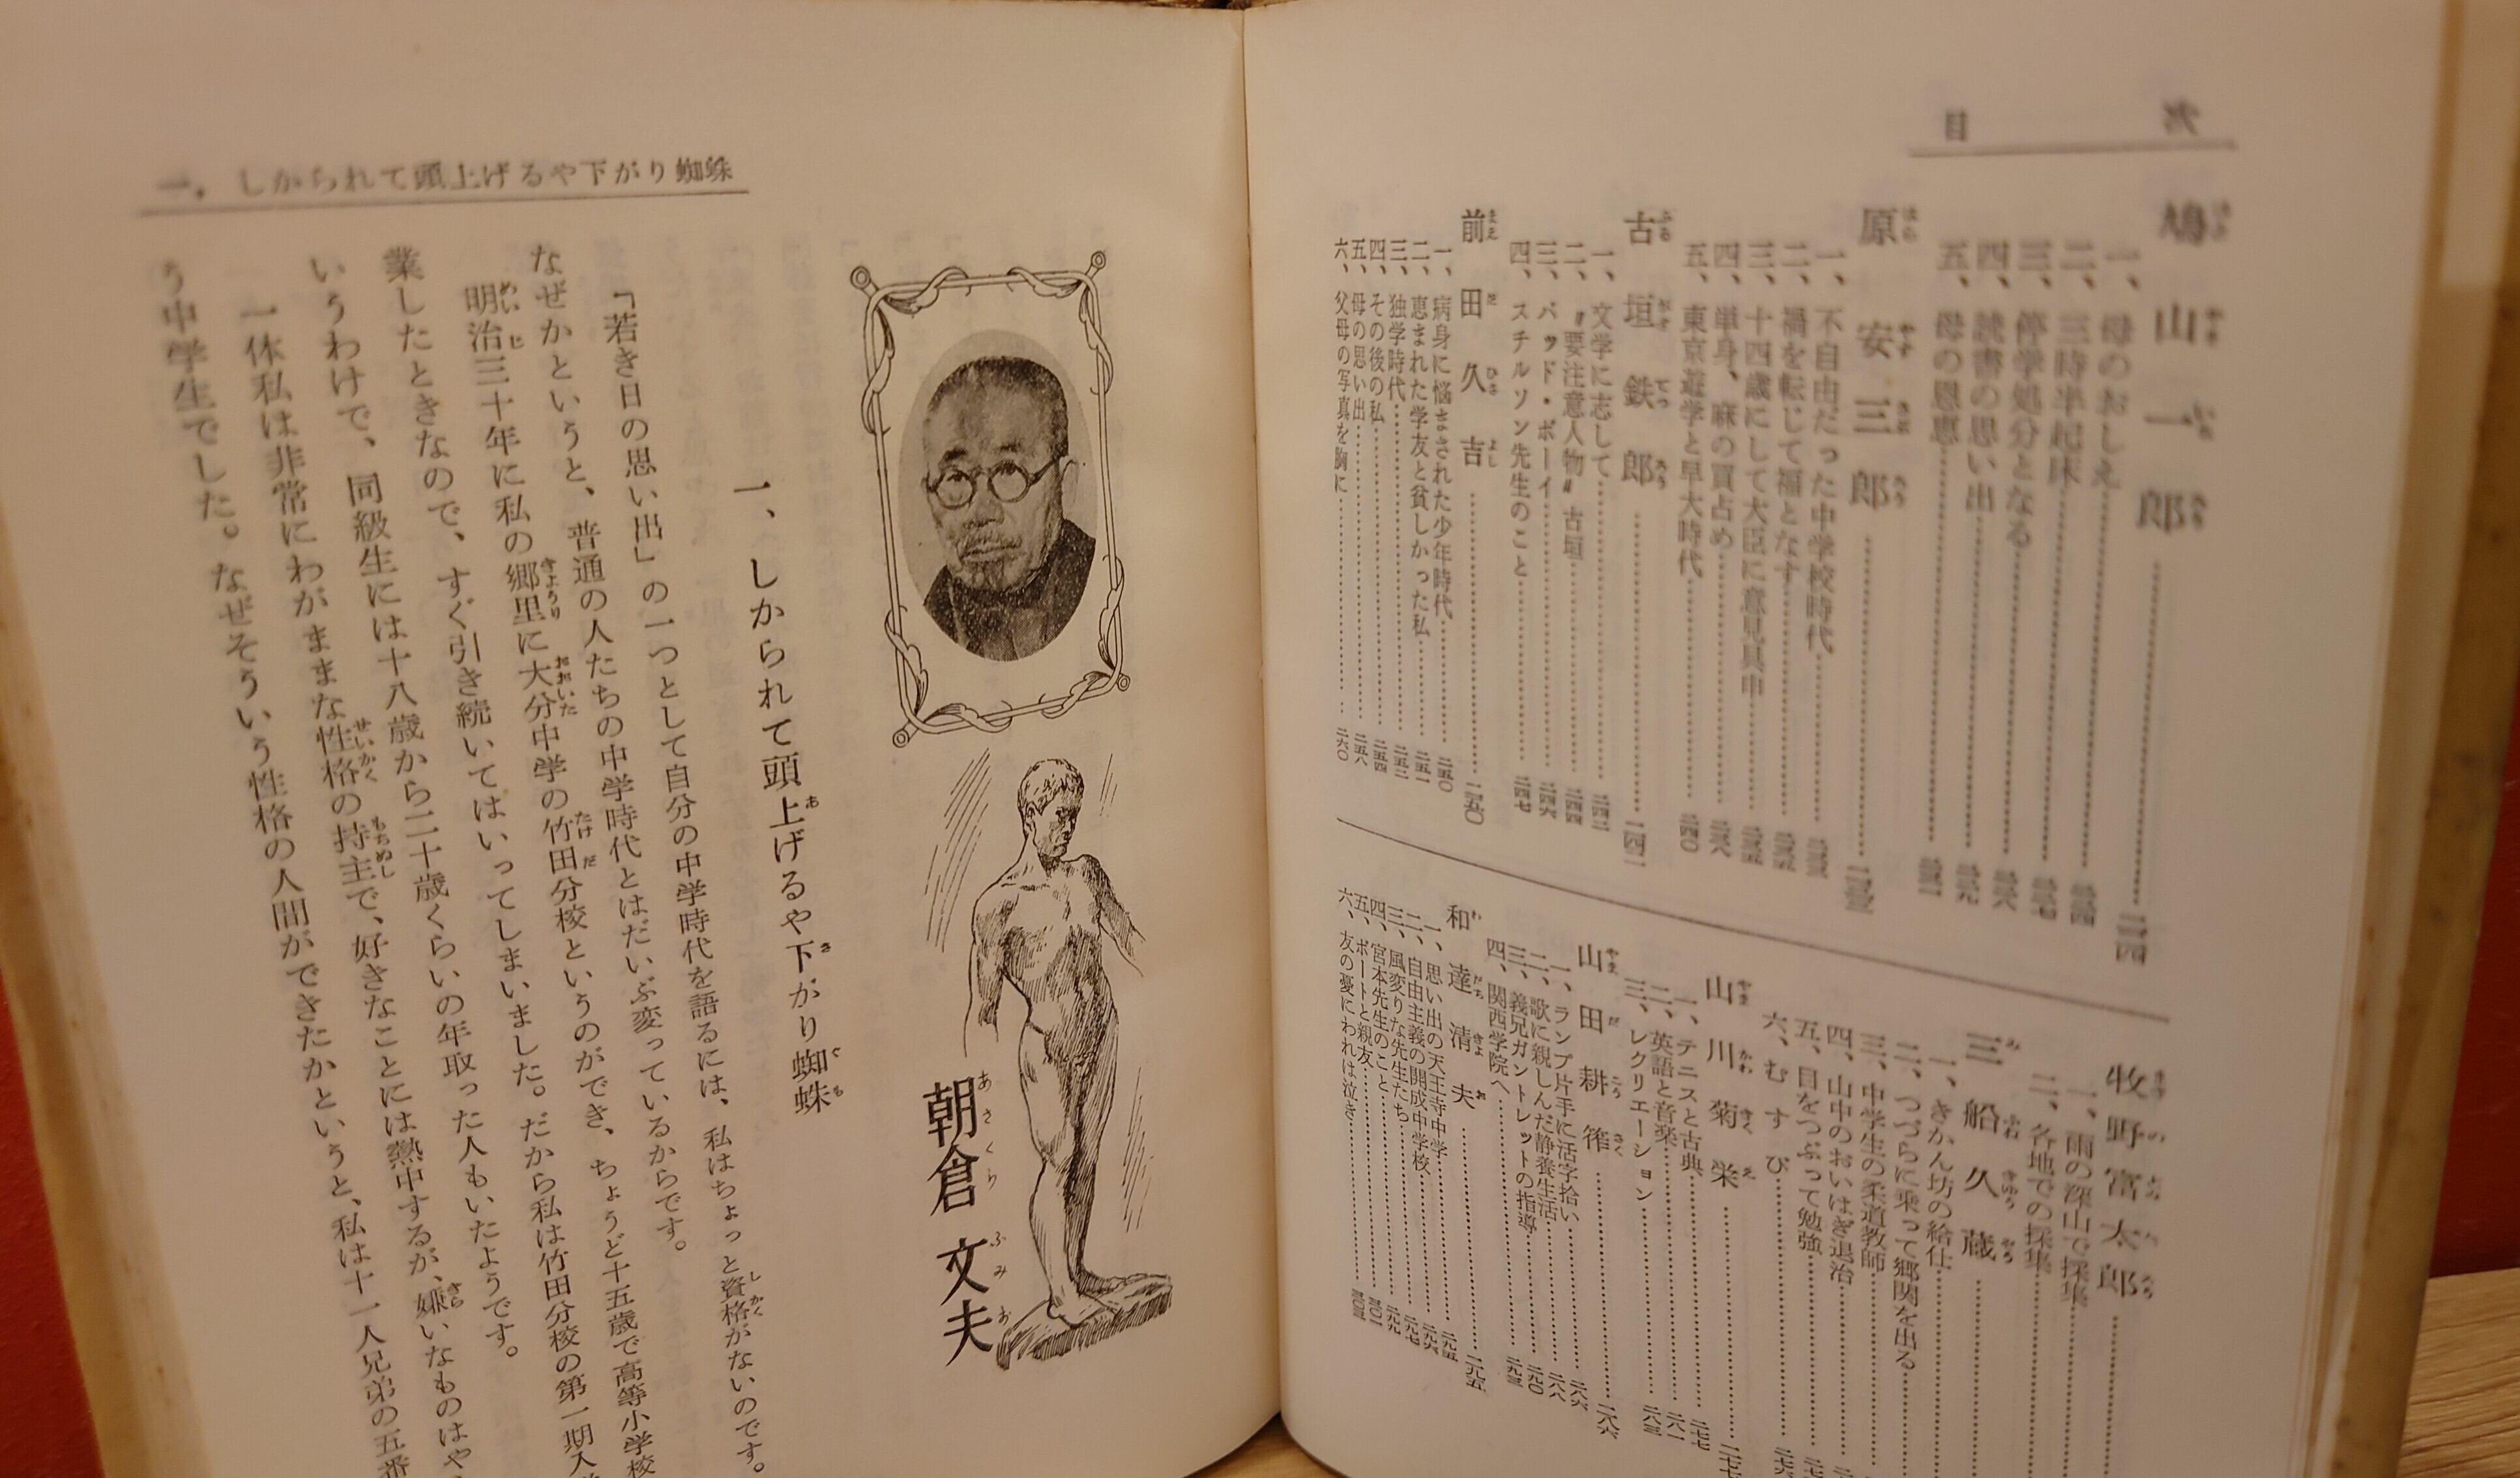 目次
鳩山一郎
一、母のおしえ
二、三時半起床
三、停学処分となる
四、読書の思い出
五、母の恩恵
原安三郎
一、不自由だった中学校時代
二、禍を転じて福となす
三、十四歳にして大臣に意見具申
四、単身、麻の買占め
五、東京遊学と早大時代 二四〇
古垣鉄郎 二四二
一、文学に志して 二四二
二、〝要注意人物〟古垣 二四四
三、バッド・ボーイ 二四六
四、スチルソン先生のこと 二四七
前田久吉 二五〇
一、病身に悩まされた少年時代 二五〇
二、恵まれた学友と貧しかった私 二五一
三、独学時代 二五二
四、その後の私 二五四
五、母の思い出 二五八
六、父母の写真を胸に 二六〇
牧野富太郎
一、雨の深山で採集
二、各地での採集
三船久蔵
一、きかん坊の給仕
二、つづらに乗って郷関を出る
三、中学生の柔道教師
四、山中のおいはぎ退治
五、目をつぶって勉強
六、むすび
山川菊栄 二七七
一、テニスと古典 二七七
二、英語と音楽 二八一
三、レクリエーション 二八三
山田耕筰 二八六
一、ランプ片手に活字拾い 二八六
二、歌に親しんだ静養生活 二八八
三、義兄ガントレットの指導 二九〇
四、関西学院へ 二九三
和達清夫 二九五
一、思い出の天王寺中学 二九五
二、自由主義の開成中学校 二九六
三、風変りな先生たち 二九七
四、宮本先生のこと 二九九
五、ボートと親友 三〇一
六、友の憂にわれは泣き 三〇三
一、しかられて頭上げるや下がり蜘蛛
朝倉文夫
あさくらふみお
一、しかられて頭上げるや下がり蜘蛛
「若き日の思い出」の一つとして自分の中学時代を語るには、私はちょっと資格がないのです。
なぜかというと、普通の人たちの中学時代とはだいぶ変っているからです。
明治三十年に私の郷里に大分中学の竹田分校というのができ、ちょうど十五歳で高等小学校
業したときなので、すぐ引き続いてはいってしまいました。だから私は竹田分校の第一期入
いうわけで、同級生には十八歳から二十歳くらいの年取った人もいたようです。
一体私は非常にわがままな性格の持主で、好きなことには熱中するが、嫌いなものはや
う中学生でした。なぜそういう性格の人間ができたかというと、私は十一人兄弟の五番